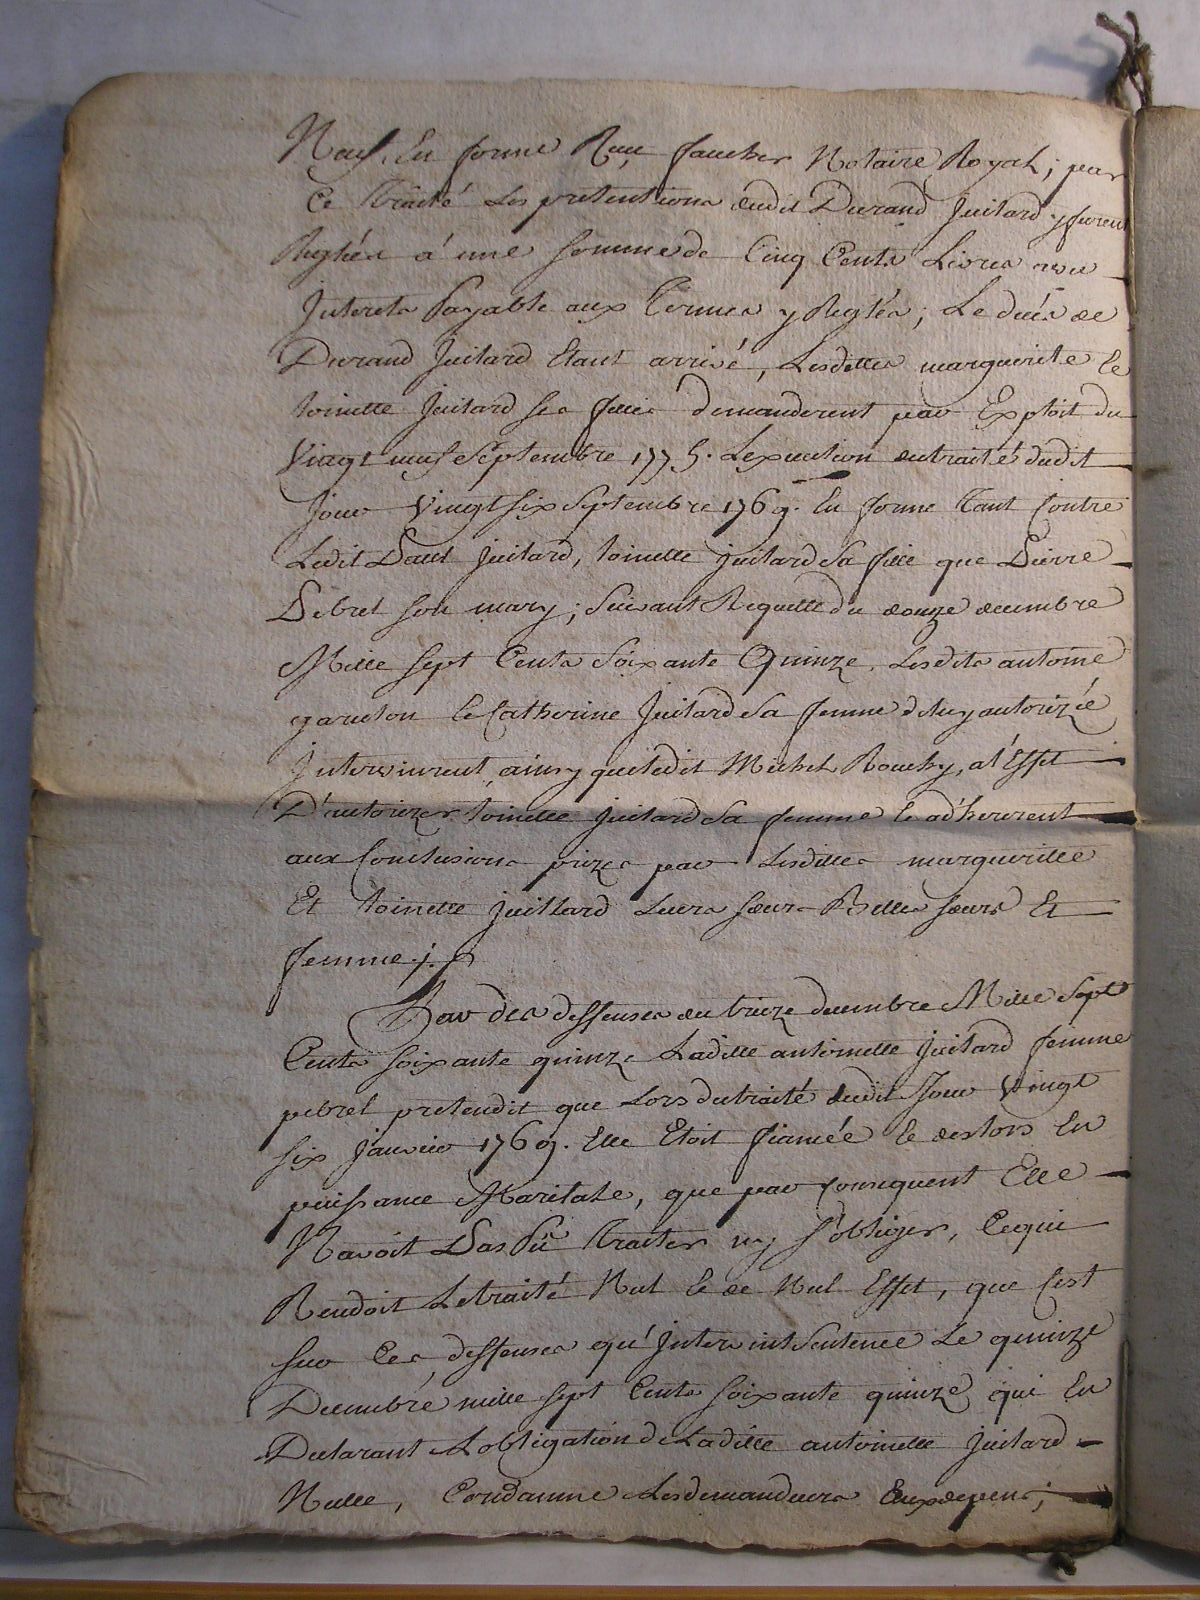 Neuf, En forme Reçu faucher Notaire Royal; par
Ce traité Les pretentions dudit Durand Juilard y furent
Reglées a une somme de Cinq Cents Livres avec
Interets Payable aux Termes y Reglés; Le decés de
Durand Juilard Etant arrivé, Lesdittes marguerite Et
toinette Juilard ses filles demanderent par Exploit du
Vingt neuf Septembre 1775. Lexecution dutraité dudit
Jour Vingt six Septembre 1769. En forme Tant Contre
Ledit Paul Juilard, toinette juilard Sa fille que Pierre
Pebrel son mary; Suivant Requette du douze decembre
Mille Sept Cents Soixante Quinze. Lesdits antoine
garuelon Et Catherine Juilard Sa femme deluy autorizée
Intervinrent, ainsy queledit Michel Rouchy, a l'Effet
D'autorizer toinette juilard Sa femme Et ad'hererent
aux Conclusions prizes par Lesdittes margueritte
Et toinette juillard Leurs sœurs Belles sœurs Et
femme;.
Par des deffenses du treize decembre Mille Sept
Cents soixante quinze Laditte antoinette Juilard femme
pebrel pretendit que Lors dutraité dudit Jour Vingt
six janvier 1769. Elle Etoit fiancée Et deslors En
puissance Maritale, que par consequent Elle
Navoit Pas Pû Traiter ny s'obliger, Cequi
Rendoit Letraité Nul Et de Nul Effet, que C'est
sur Ces deffenses qu'Intervint Sentence Le quinze
Decembre mille sept Cents soixante quinze qui En
Declarant Lobligation de Laditte antoinette Juilard
Nulle, Condamne Lesdemandeurs Enxdepens;